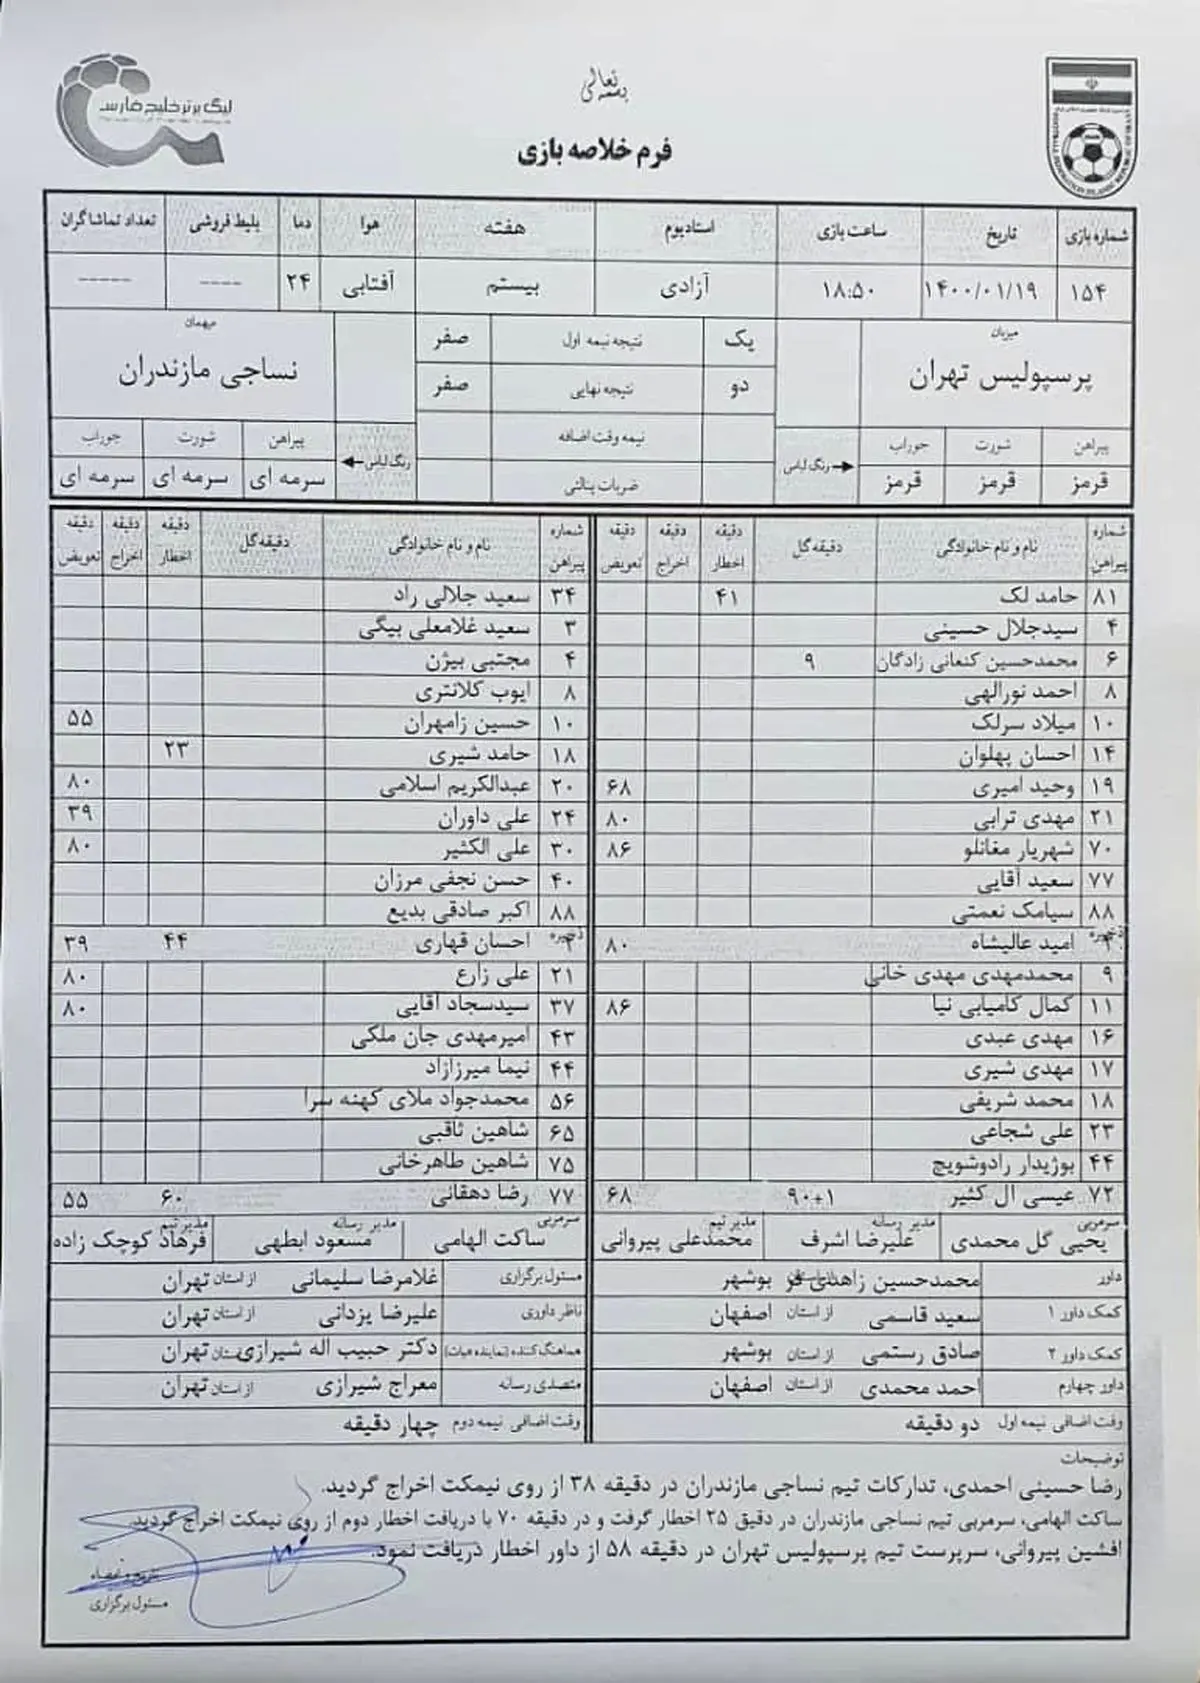 بسمه تعالی
لیگ برتر خلیج فارس
فرم خلاصه بازی
شماره بازی تاریخ ساعت بازی استادیوم هفته هوا دما بلیط فروشی تعداد تماشاگران
۱۵۴ ۱۴۰۰/۰۱/۱۹ ۱۸:۵۰ آزادی بیستم آفتابی ۲۴ ---- -----
میزبان یک نتیجه نیمه اول صفر میهمان
پرسپولیس تهران دو نتیجه نهایی صفر نساجی مازندران
پیراهن شورت جوراب رنگ لباس نیمه وقت اضافه رنگ لباس پیراهن شورت جوراب
قرمز قرمز قرمز ضربات پنالتی سرمه ای سرمه ای سرمه ای
شماره پیراهن نام و نام خانوادگی دقیقه گل دقیقه اخطار دقیقه اخراج دقیقه تعویض شماره پیراهن نام و نام خانوادگی دقیقه گل دقیقه اخطار دقیقه اخراج دقیقه تعویض
۸۱ حامد لک ۴۱ ۳۴ سعید جلالی راد
۴ سیدجلال حسینی ۳ سعید غلامعلی بیگی
۶ محمدحسین کنعانی زادگان ۹ ۴ مجتبی بیژن
۸ احمد نورالهی ۸ ایوب کلانتری
۱۰ میلاد سرلک ۱۰ حسین زامهران ۵۵
۱۴ احسان پهلوان ۱۸ حامد شیری ۲۳
۱۹ وحید امیری ۶۸ ۲۰ عبدالکریم اسلامی ۸۰
۲۱ مهدی ترابی ۸۰ ۲۴ علی داوران ۳۹
۷۰ شهریار مغانلو ۸۶ ۳۰ علی الکثیر ۸۰
۷۷ سعید آقایی ۴۰ حسن نجفی مرزان
۸۸ سیامک نعمتی ۸۸ اکبر صادقی بدیع
ذخیره امید عالیشاه ۸۰ ذخیره احسان قهاری ۴۴ ۳۹
۹ محمدمهدی مهدی خانی ۲۱ علی زارع ۸۰
۱۱ کمال کامیابی نیا ۸۶ ۳۷ سیدسجاد آقایی ۸۰
۱۶ مهدی عبدی ۴۳ امیرمهدی جان ملکی
۱۷ مهدی شیری ۴۴ نیما میرزازاد
۱۸ محمد شریفی ۵۶ محمدجواد ملای کهنه سرا
۲۳ علی شجاعی ۶۵ شاهین ثاقبی
۴۴ بوژیدار رادوشویچ ۷۵ شاهین طاهرخانی
۷۲ عیسی ال کثیر ۹۰+۱ ۶۸ ۷۷ رضا دهقانی ۶۰ ۵۵
سرمربی یحیی گل محمدی مدیر رسانه علیرضا اشرف مدیر تیم محمدعلی پیروانی سرمربی ساکت الهامی مدیر رسانه مسعود ابطهی مدیر تیم فرهاد کوچک زاده
داور محمدحسین زاهدی فر از استان بوشهر مسئول برگزاری غلامرضا سلیمانی از استان تهران
کمک داور ۱ سعید قاسمی از استان اصفهان ناظر داوری علیرضا یزدانی از استان تهران
کمک داور ۲ صادق رستمی از استان بوشهر هماهنگ کننده (نماینده هیات) دکتر حبیب اله شیرازی از استان تهران
داور چهارم احمد محمدی از استان اصفهان متصدی رسانه معراج شیرازی از استان تهران
وقت اضافی نیمه اول دو دقیقه وقت اضافی نیمه دوم چهار دقیقه
توضیحات
رضا حسینی احمدی، تدارکات تیم نساجی مازندران در دقیقه ۳۸ از روی نیمکت اخراج گردید.
ساکت الهامی، سرمربی تیم نساجی مازندران در دقیق ۲۵ اخطار گرفت و در دقیقه ۷۰ با دریافت اخطار دوم از روی نیمکت اخراج گردید.
افشین پیروانی، سرپرست تیم پرسپولیس تهران در دقیقه ۵۸ از داور اخطار دریافت نمود.
تاریخ و امضاء
مسئول برگزاری